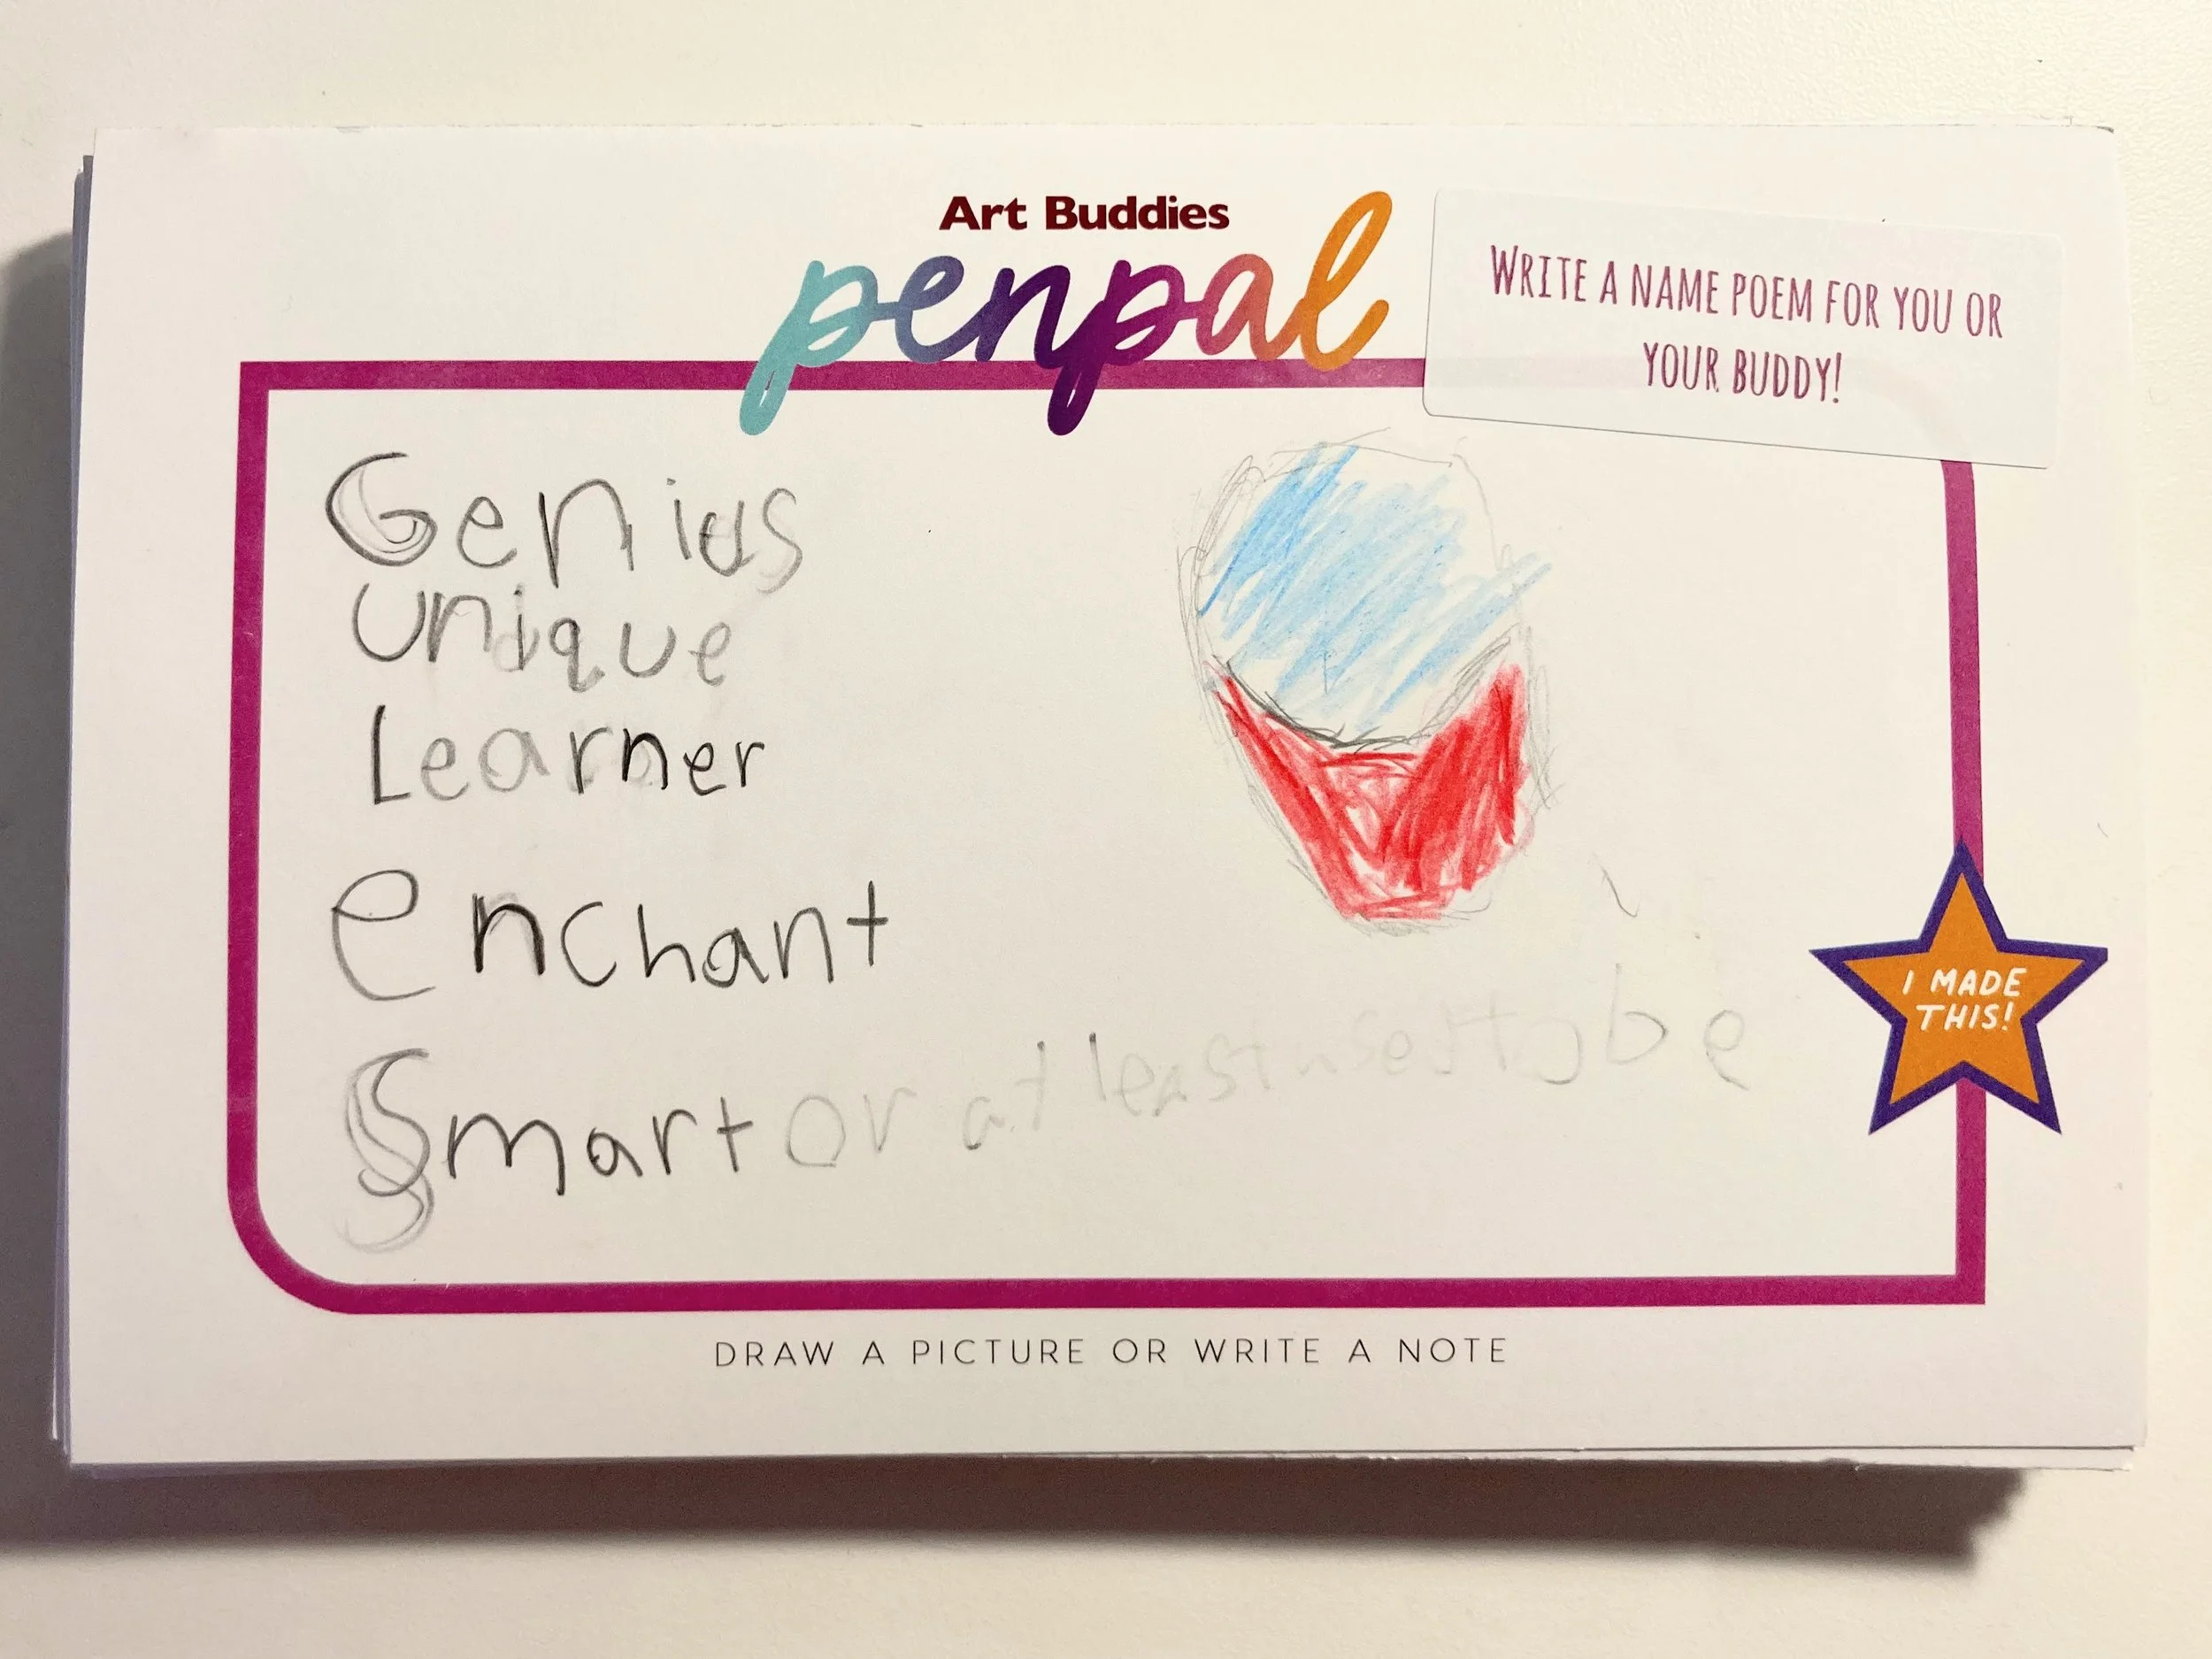 Art Buddies
penpal
WRITE A NAME POEM FOR YOU OR
YOUR BUDDY!
Genius
unique
Learner
enchant
Smart or at least used to be
I MADE
THIS!
DRAW A PICTURE OR WRITE A NOTE